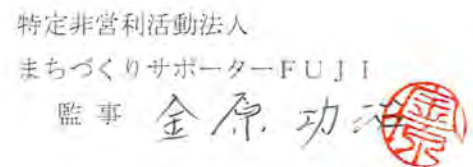 特定非営利活動法人
まちづくりサポーターFUJI
監事 金原功治